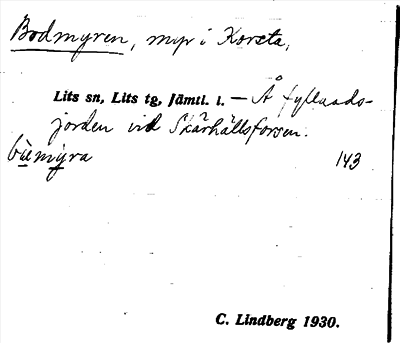 Bodmyren, myr i Korsta,
Lits sn, Lits tg, Jämtl. l. — Å fyllnads-
jorden vid Skärhällsforsen.
bùemýra 143
C. Lindberg 1930.